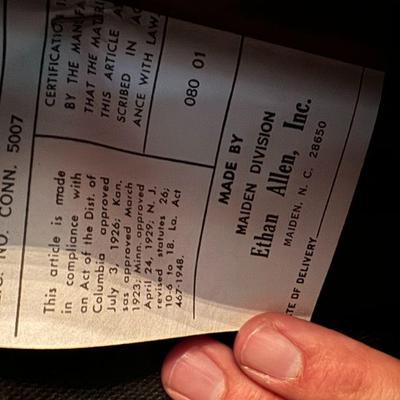 REG. NO. CONN. 5007
CERTIFICATION
BY THE MANUFA
THAT THE MATERI
THIS ARTICLE A
SCRIBED IN AC
ANCE WITH LAW.
080 01
This article is made
in compliance with
an Act of the Dist. of
Columbia approved
July 3, 1926; Kan.
sas approved March
1923; Minn. approved
April 24, 1929; N. J.
revised statutes 26;
10-6 to 18. La. Act
467-1948.
MADE BY
MAIDEN DIVISION
Ethan Allen, Inc.
MAIDEN, N. C. 28650
TE OF DELIVERY